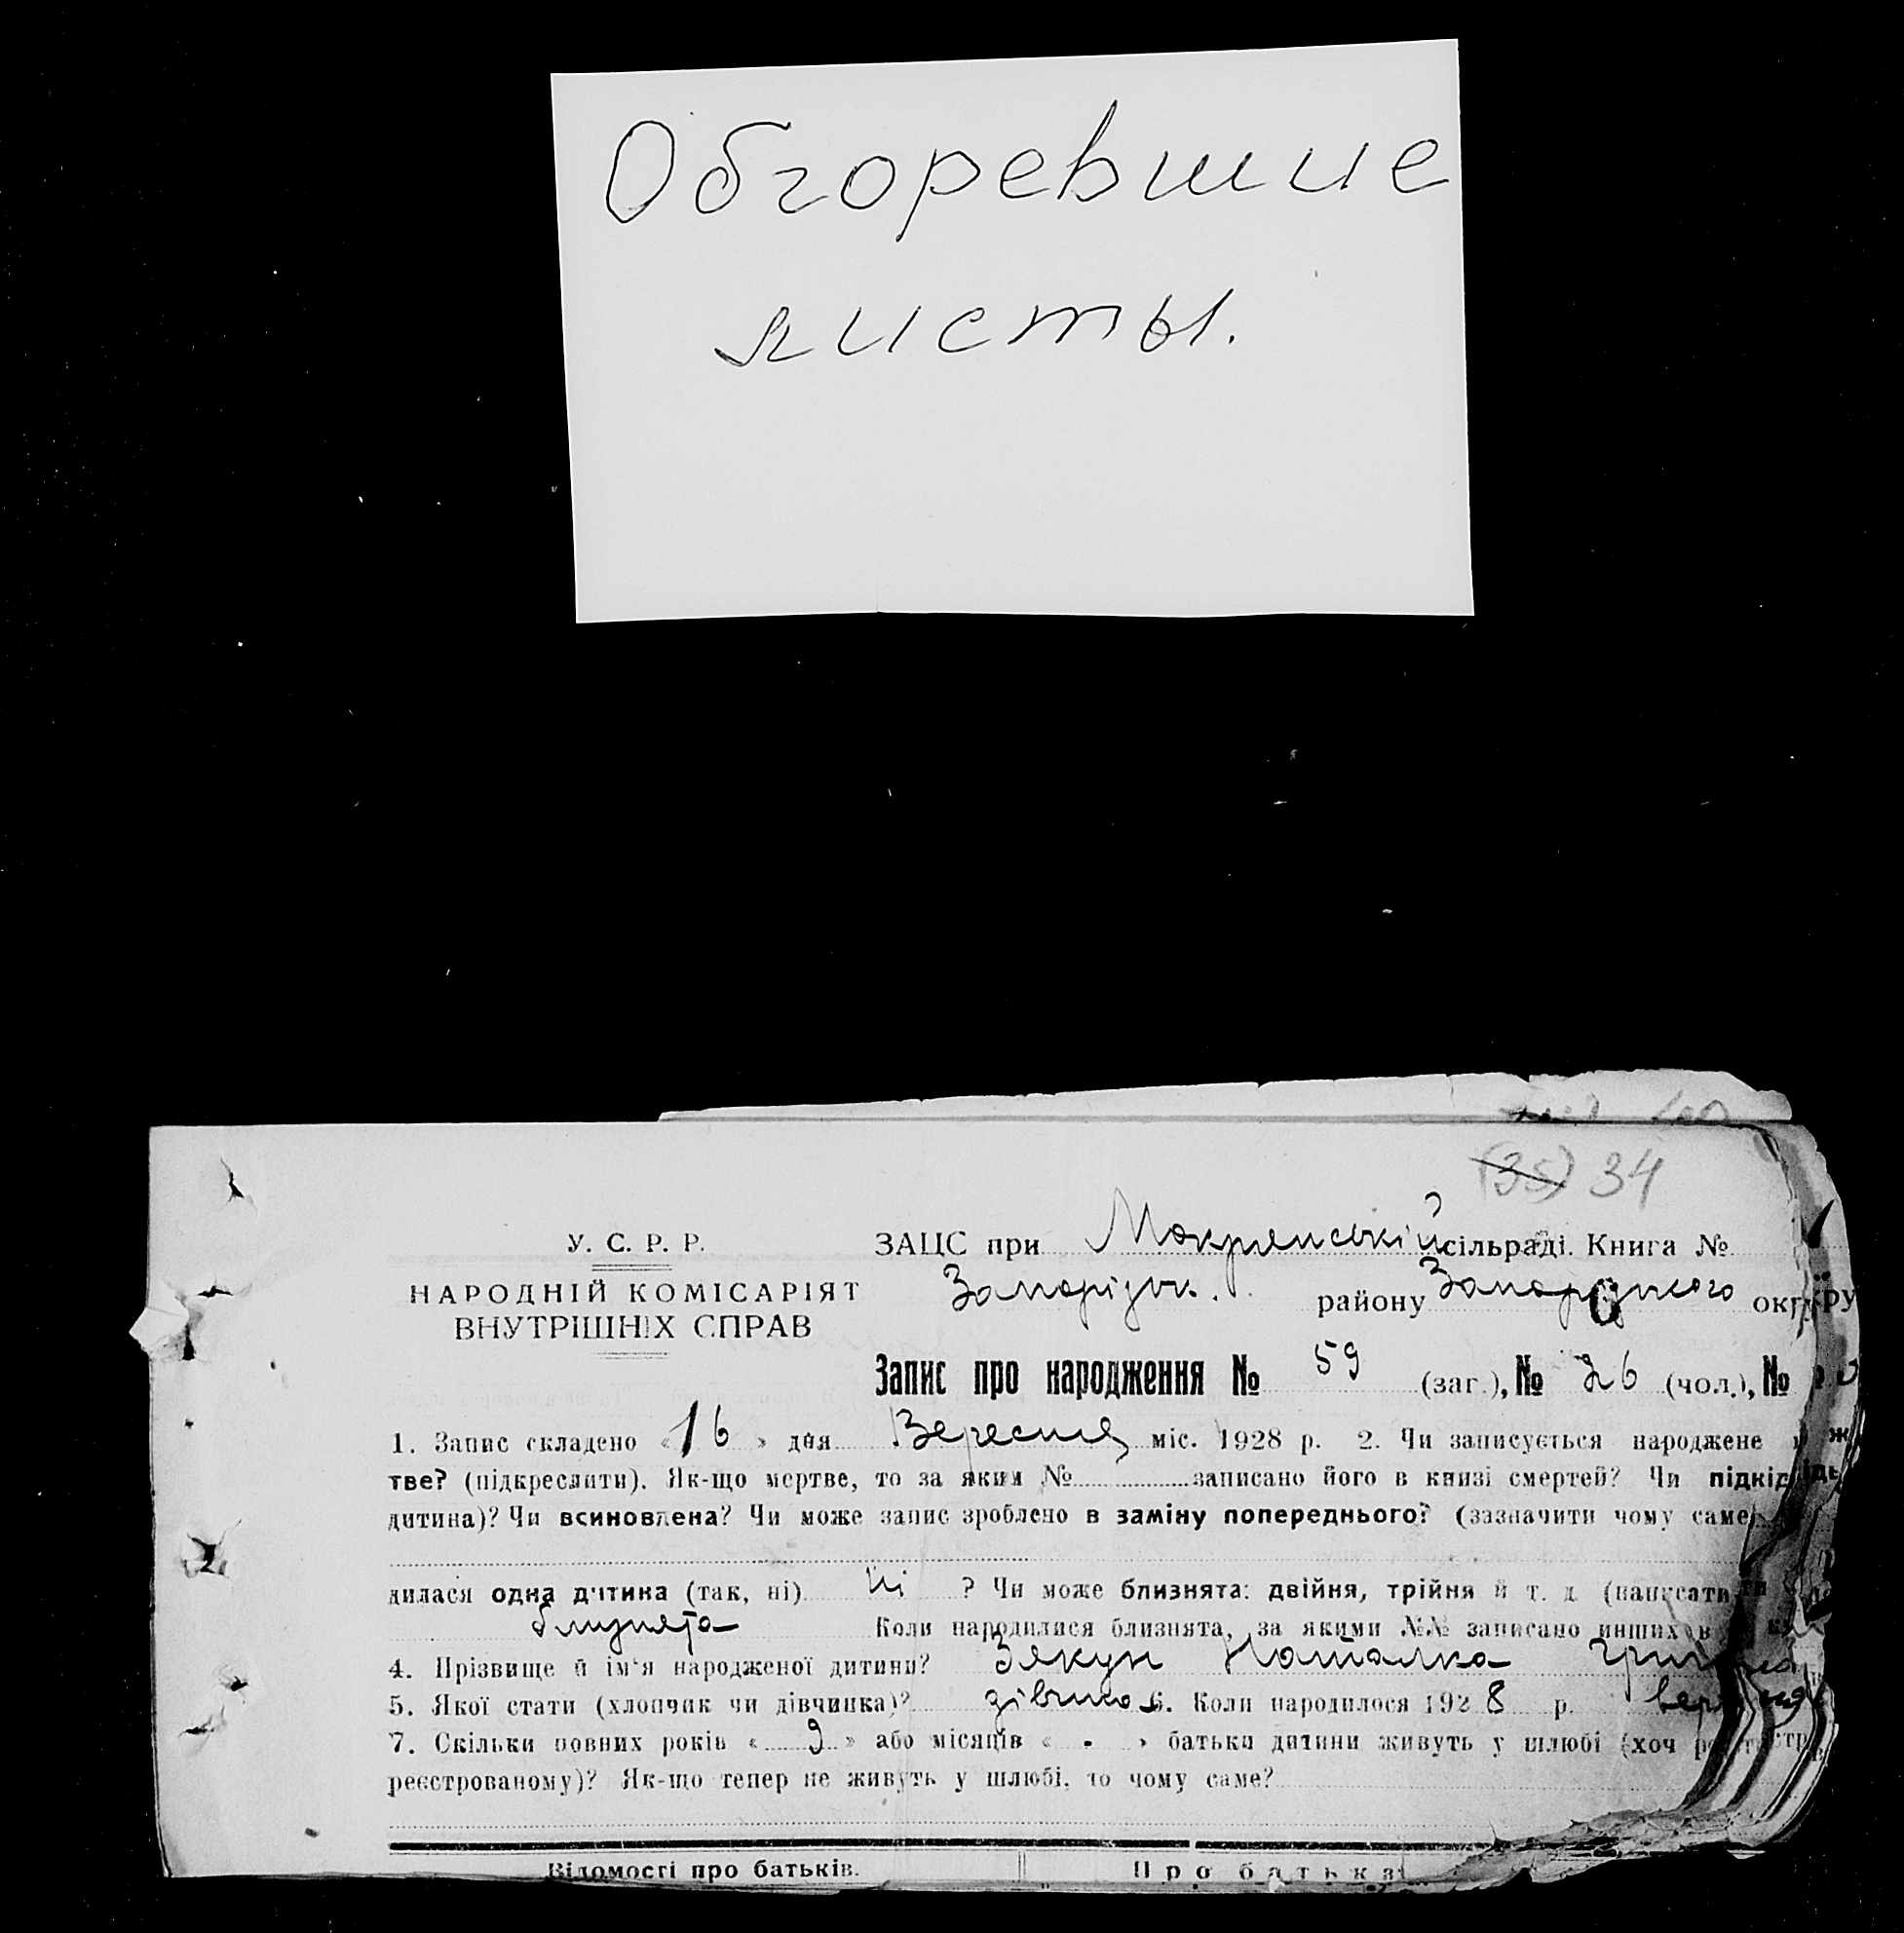 Обгоревшие
листы.
(35) 34
У. С. Р. Р.
НАРОДНІЙ КОМІСАРІЯТ
ВНУТРІШНІХ СПРАВ
ЗАЦС при Мокрянській сільраді. Книга №
Запорізьк. району Запорізького окр
Запис про народження № 59 (заг.), № 26 (чол.), №
1. Запис складено « 16 » дня Вересня міс. 1928 р. 2. Чи записується народжене
тве? (підкреслити). Як-що мертве, то за яким № записано його в книзі смертей? Чи підкід
дитина)? Чи всиновлена? Чи може запис зроблено в заміну попереднього? (зазначити чому саме)
дилася одна дитина (так, ні) Ні ? Чи може близнята: двійня, трійня й т. д. (написати
близнята Коли народилися близнята, за якими №№ записано инших в
4. Прізвище й ім'я народженої дитини? Зякун Наталка
5. Якої стати (хлопчик чи дівчинка)? дівчина 6. Коли народилося 1928 р.
7. Скільки повних років « 9 » або місяців « - » батьки дитини живуть у шлюбі (хоч
реєстрованому)? Як-що тепер не живуть у шлюбі, то чому саме?
Відомості про батьків.
Про батька